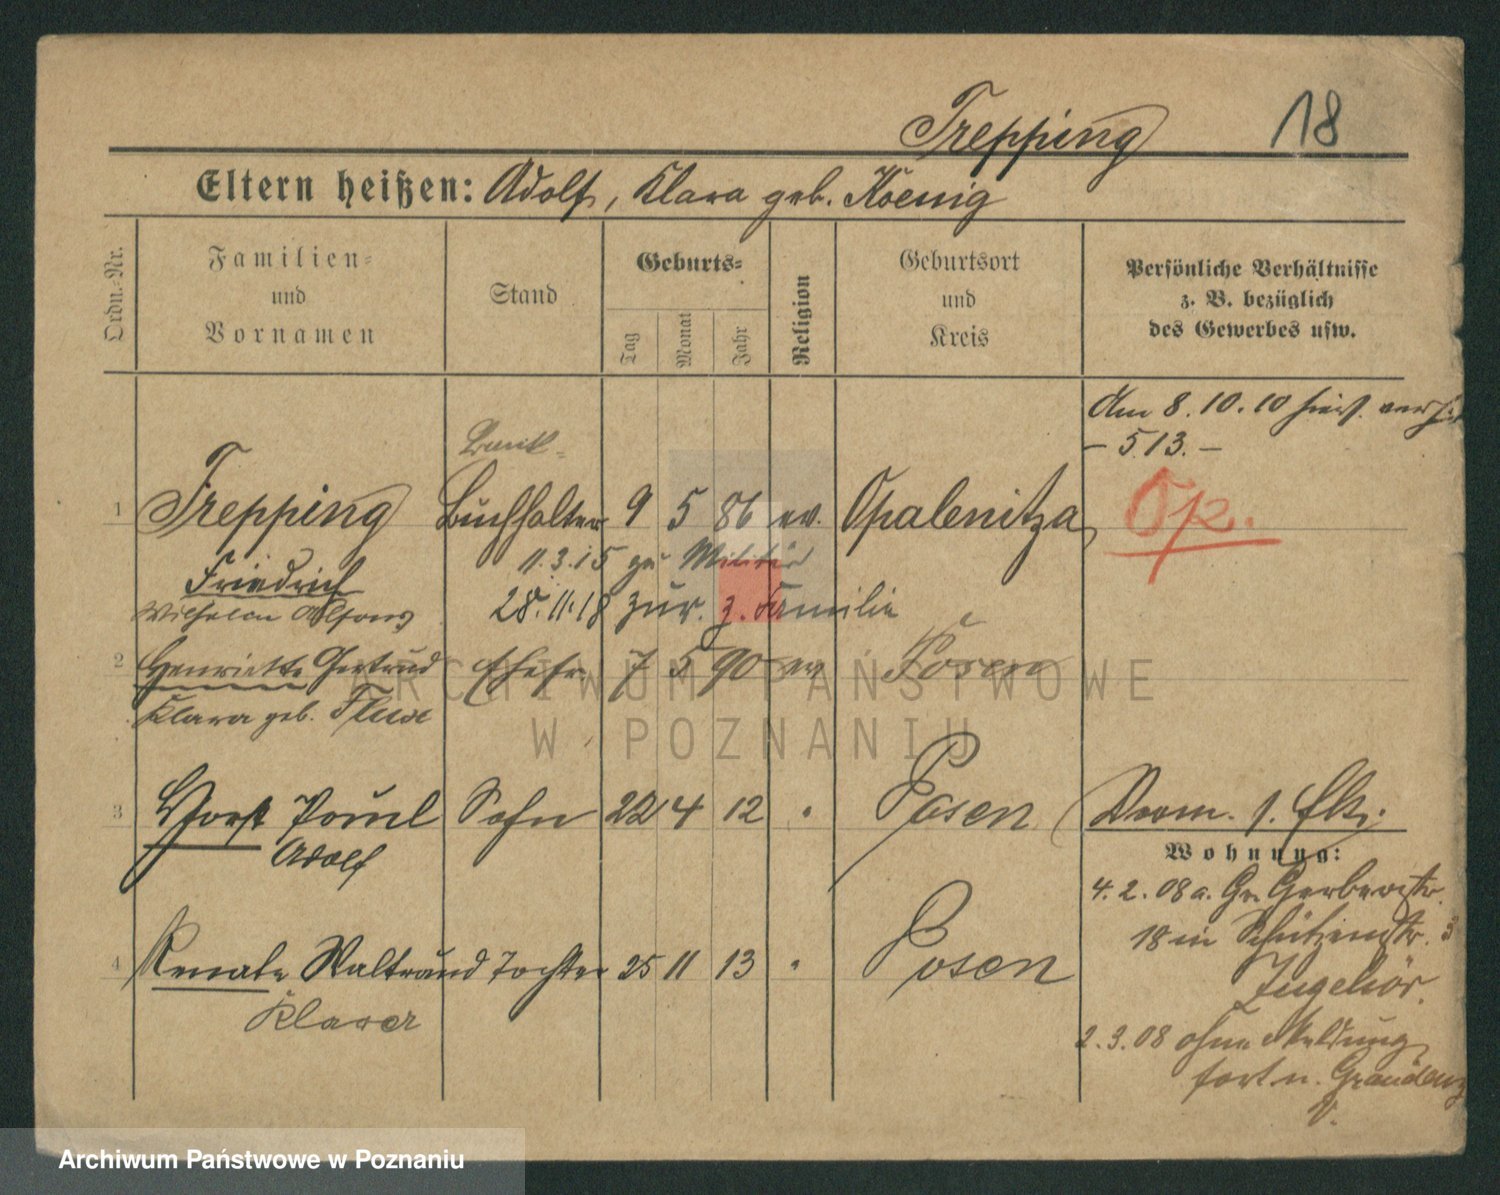 Trepping 18
Eltern heißen: Adolf, Klara geb. Koenig
Ordn.-Nr.
Familien-
und
Vornamen
Stand
Geburts-
Tag
Monat
Jahr
Religion
Geburtsort
und
Kreis
Persönliche Verhältnisse
z. B. bezüglich
des Gewerbes usw.
Am 8.10.10 hiers.
- 513. -
Bank-
1 Trepping Buchhalter 9 5 86 ev. Opalenitza
Op.
11.3.15 zu Militär
Friedrich
28.11.18 zur. z. Familie
Wilhelm Alfons
2 Henriette Gertrud Ehefr. 7 5 90 ev Posen
Klara geb.
ARCHIWUM PAŃSTWOWE
W POZNANIU
3 Horst Paul Sohn 22 4 12 " Posen
Adolf
Wohnung:
4.2.08 a. Gr. Gerberstr.
18 in Schützenstr. 3
4 Renate Waltraud Tochter 25 11 13 " Posen
Zugehör.
Klara
2.3.08 ohne Meldung
fort n. Graudenz
Archiwum Państwowe w Poznaniu